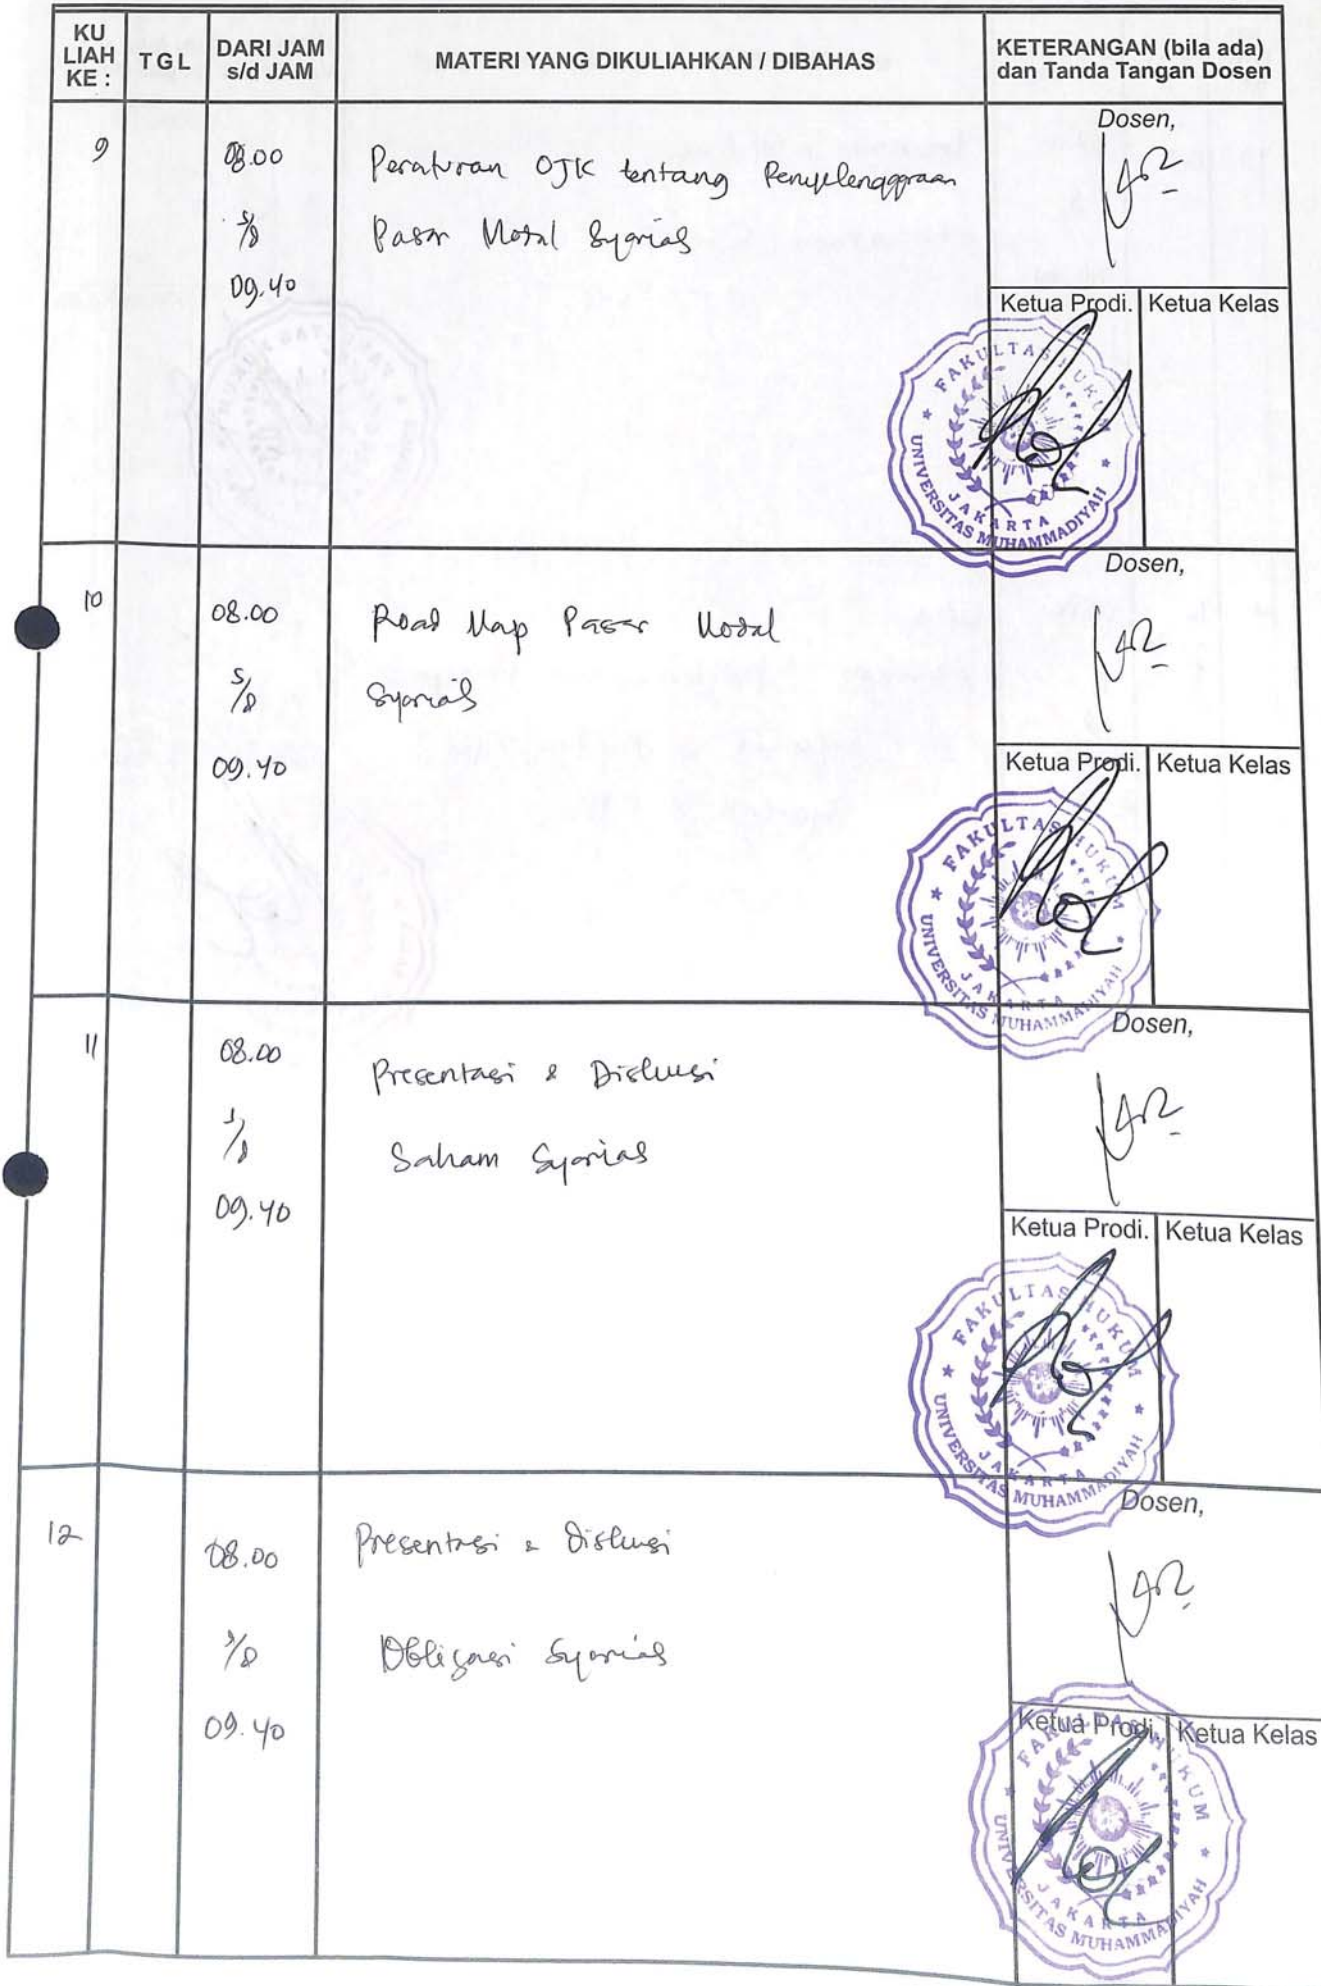 KU
LIAH
KE :
TGL
DARI JAM
s/d JAM
MATERI YANG DIKULIAHKAN / DIBAHAS
KETERANGAN (bila ada)
dan Tanda Tangan Dosen
9
08.00
s/d
09.40
Peraturan OJK tentang Penyelenggaraan
Pasar Modal Syariah
Dosen,
Ketua Prodi.
Ketua Kelas
FAKULTAS HUKUM
UNIVERSITAS MUHAMMADIYAH
JAKARTA
10
08.00
s/d
09.40
Road Map Pasar Modal
Syariah
Dosen,
Ketua Prodi.
Ketua Kelas
FAKULTAS HUKUM
UNIVERSITAS MUHAMMADIYAH
JAKARTA
11
08.00
s/d
09.40
Presentasi & Diskusi
Saham Syariah
Dosen,
Ketua Prodi.
Ketua Kelas
FAKULTAS HUKUM
UNIVERSITAS MUHAMMADIYAH
JAKARTA
12
08.00
s/d
09.40
Presentasi & Diskusi
Obligasi Syariah
Dosen,
Ketua Prodi.
Ketua Kelas
FAKULTAS HUKUM
UNIVERSITAS MUHAMMADIYAH
JAKARTA